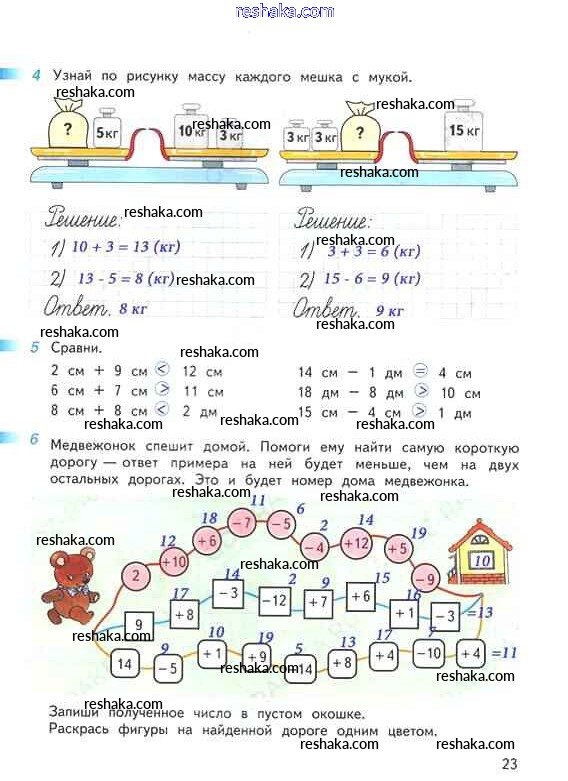 reshaka.com
4 Узнай по рисунку массу каждого мешка с мукой.
reshaka.com
reshaka.com
? 5 кг 10 кг 3 кг
reshaka.com
3 кг 3 кг ? 15 кг
reshaka.com
reshaka.com
Решение:
1) 10 + 3 = 13 (кг)
2) 13 - 5 = 8 (кг)
Ответ. 8 кг
reshaka.com
reshaka.com
Решение:
1) 3 + 3 = 6 (кг)
2) 15 - 6 = 9 (кг)
Ответ. 9 кг
reshaka.com
reshaka.com
reshaka.com
5 Сравни.
reshaka.com
2 см + 9 см < 12 см
6 см + 7 см > 11 см
8 см + 8 см < 2 дм
14 см − 1 дм = 4 см
18 дм − 8 дм > 10 см
15 см − 4 см > 1 дм
reshaka.com
reshaka.com
reshaka.com
6 Медвежонок спешит домой. Помоги ему найти самую короткую
дорогу — ответ примера на ней будет меньше, чем на двух
остальных дорогах. Это и будет номер дома медвежонка.
reshaka.com
reshaka.com
12 18 11 6 2 14 19
2 +10 +6 −7 −5 −4 +12 +5 −9
10
reshaka.com
reshaka.com
reshaka.com
17 14 2 9 15 16
9 +8 −3 −12 +7 +6 +1 −3 =13
reshaka.com
9 10 19 5 13 17 7
14 −5 +1 +9 −14 +8 +4 −10 +4 =11
reshaka.com
reshaka.com
Запиши полученное число в пустом окошке.
reshaka.com
Раскрась фигуры на найденной дороге одним цветом.
reshaka.com
reshaka.com
23